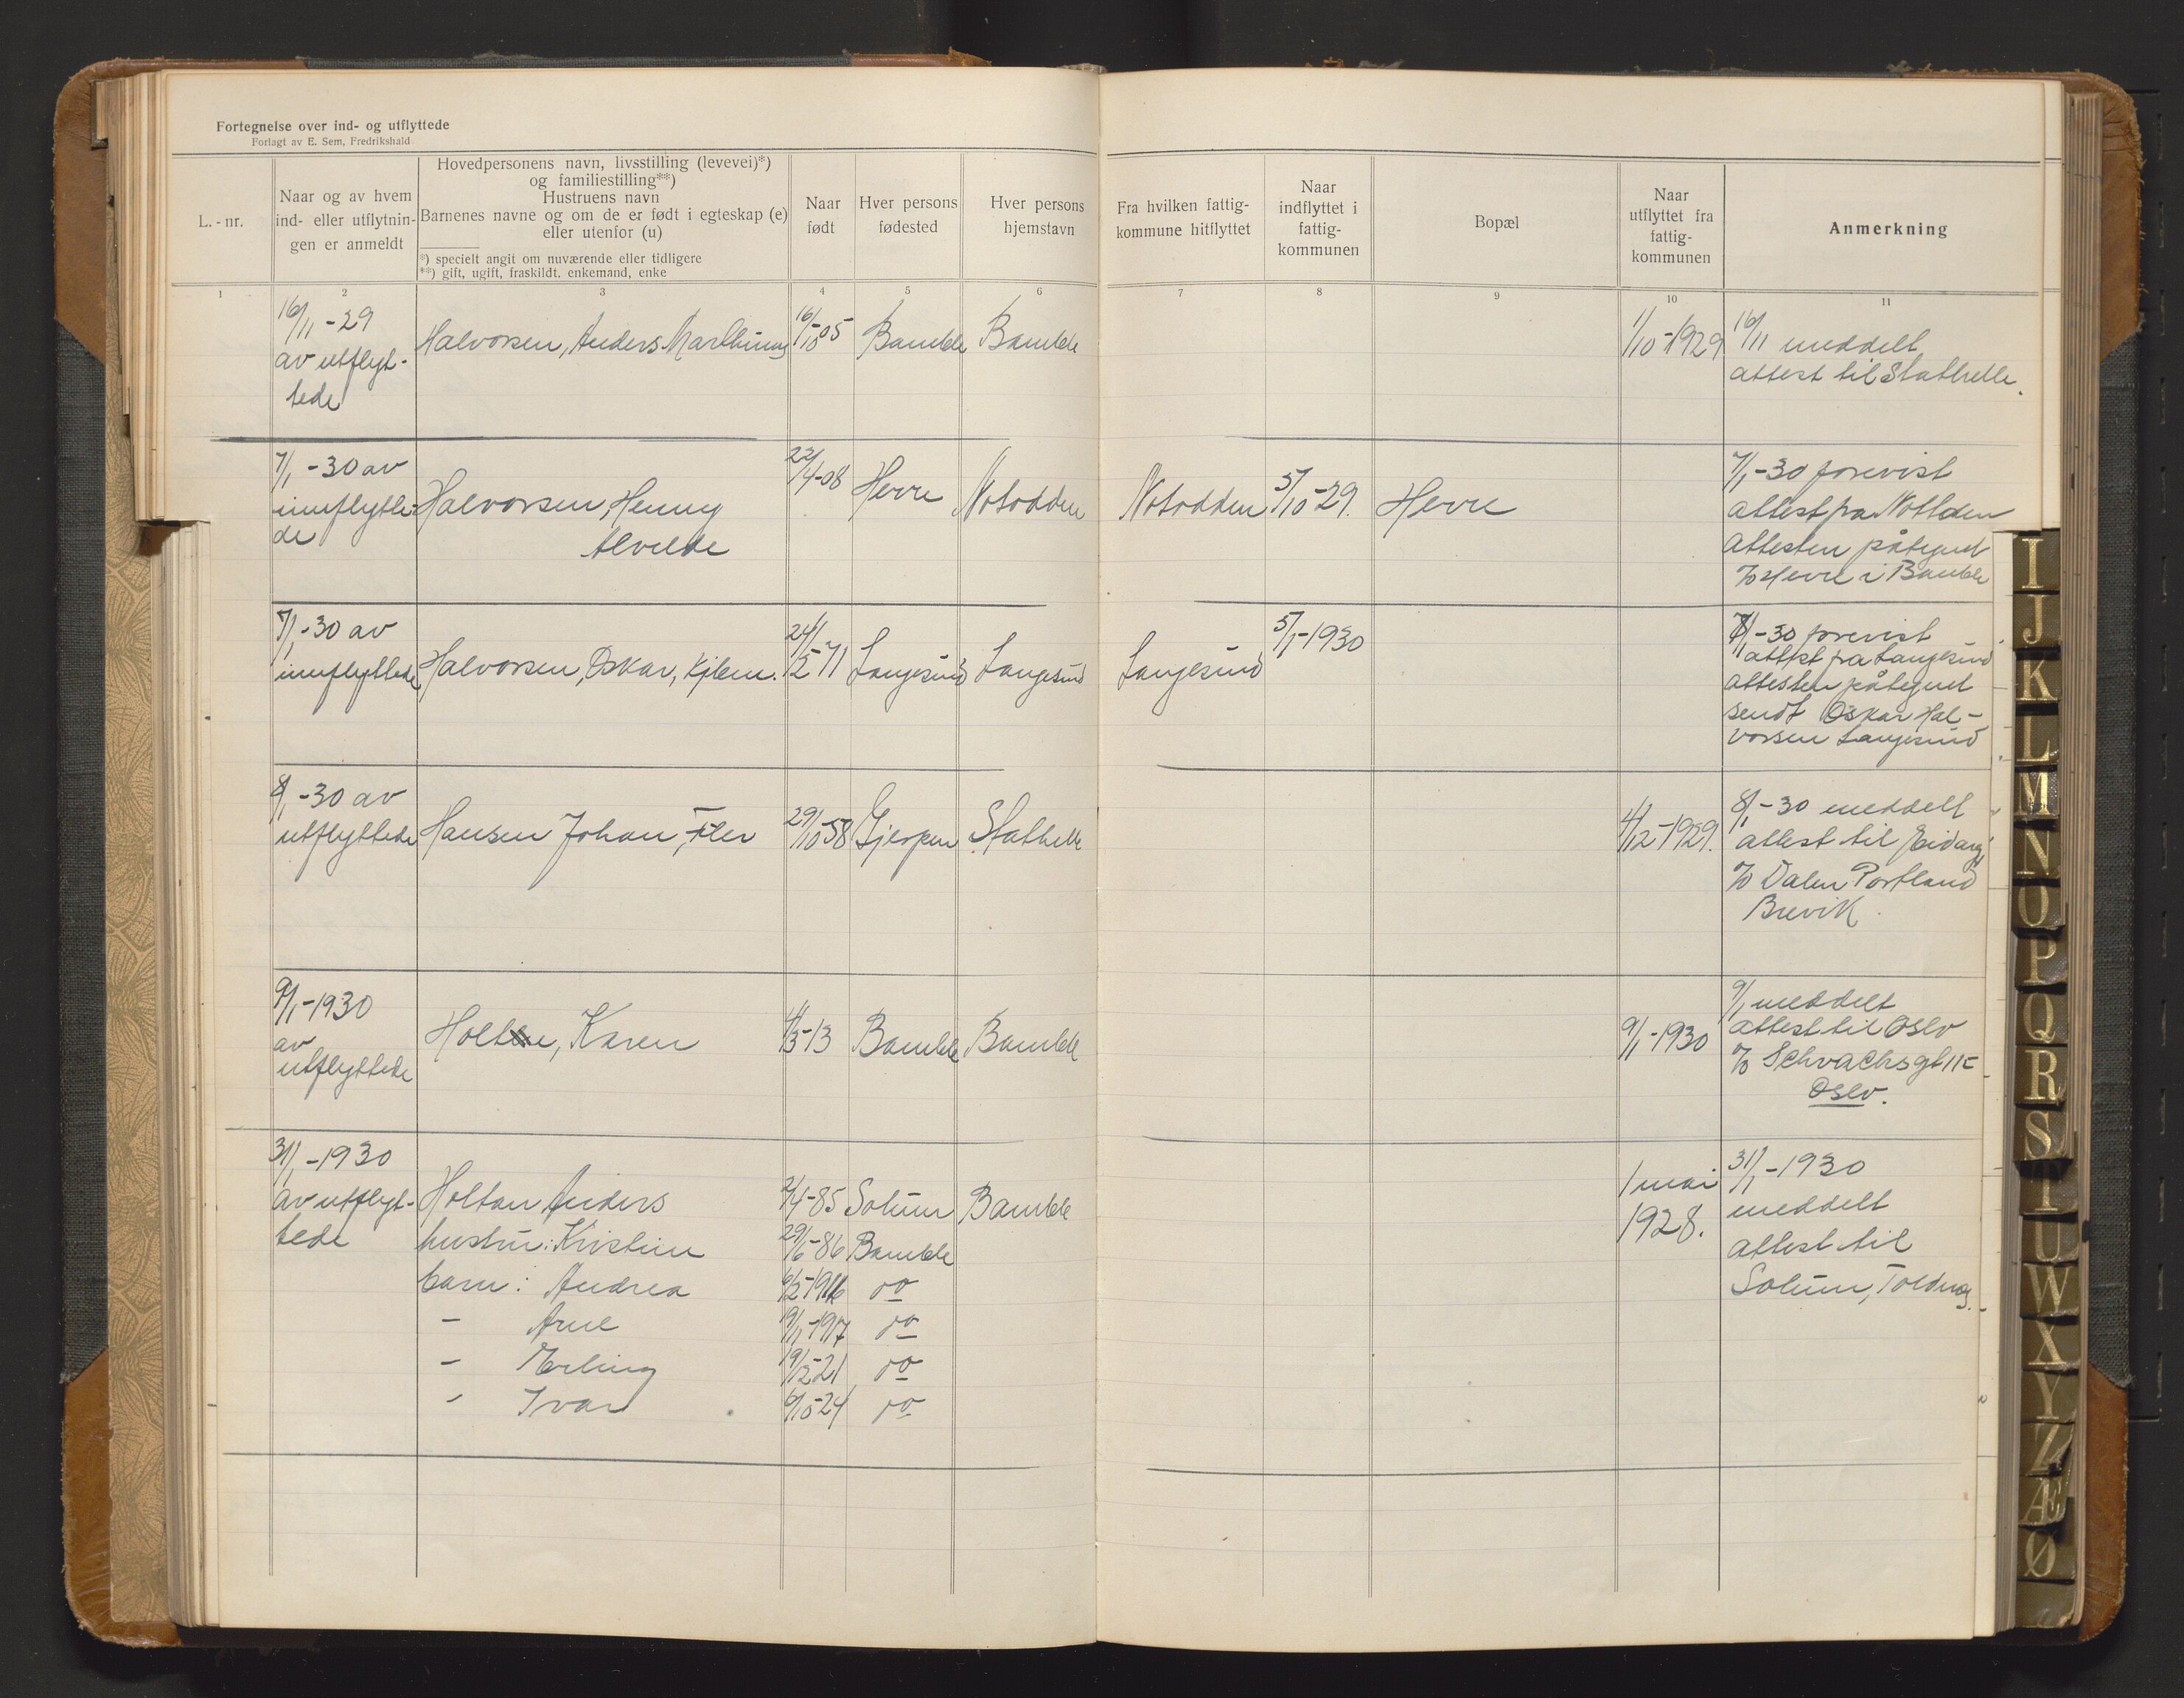 Fortegnelse over ind- og utflyttede
Forlagt av E. Sem, Fredrikshald
L. - nr.
Naar og av hvem
ind- eller utflytnin-
gen er anmeldt
Hovedpersonens navn, livsstilling (levevei)*)
og familiestilling**)
Hustruens navn
Barnenes navne og om de er født i egteskap (e)
eller utenfor (u)
*) specielt angit om nuværende eller tidligere
**) gift, ugift, fraskildt. enkemand, enke
Naar
født
Hver persons
fødested
Hver persons
hjemstavn
Fra hvilken fattig-
kommune hitflyttet
Naar
indflyttet i
fattig-
kommunen
Bopæl
Naar
utflyttet fra
fattig-
kommunen
Anmerkning
1 2 3 4 5 6 7 8 9 10 11
16/11 -29
av utflyt-
tede
Halvorsen, Anders Marthinus
16/10-05
Bamble
Bamble
1/10-1929
16/11 meddelt
attest til Stathelle.
7/1 -30 av
innflytte-
de
Halvorsen, Henny
Alvilde
22/4-08
Herre
Notodden
Notodden
5/10-29.
Herre
7/1-30 forevist
attest fra Nottden
Attesten påtegnet
%Herre i Bamble
7/1-30 av
innflyttede
Halvorsen, Oskar, Kjlem.
24/12-71
Langesund
Langesund
Langesund
5/1-1930
7/1-30 forevist
attest fra Langesund
attesten påtegnet
sendt Oskar Hal-
vorsen Langesund
8/1-30 av
utflyttede
Hansen Johan,
29/10-58
Gjerpen
Stathelle
4/12-1929.
8/1-30 meddelt
attest til Eidang
% Dalen Portland
Brevik
9/1-1930
av
utflyttede
Holte, Karen
4/3-13
Bamble
Bamble
9/1-1930
9/1 meddelt
attest til Oslo
% Schvachsgt 11
Oslo.
31/1-1930
av utflyt-
tede
Holtan Anders
2/4-85
Solum
Bamble
hustru: Kristine
29/6-86
Bamble
barn: Andrea
6/2-1916
do
- Arne
19/1-1917
do
- Erling
19/12-21
do
- Ivar
6/10-24
do
1 mai
1928.
31/1-1930
meddelt
attest til
Solum,
I
J
K
L
M
N
O
P
Q
R
S
T
U
W
X
Y
Z
Æ
Ø